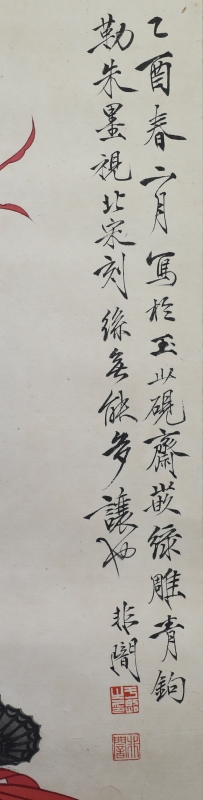 乙酉春二月寫於玉山硯齋嵌綠雕青鉤
勒朱墨視北宋刻絲無能多讓也
非闇